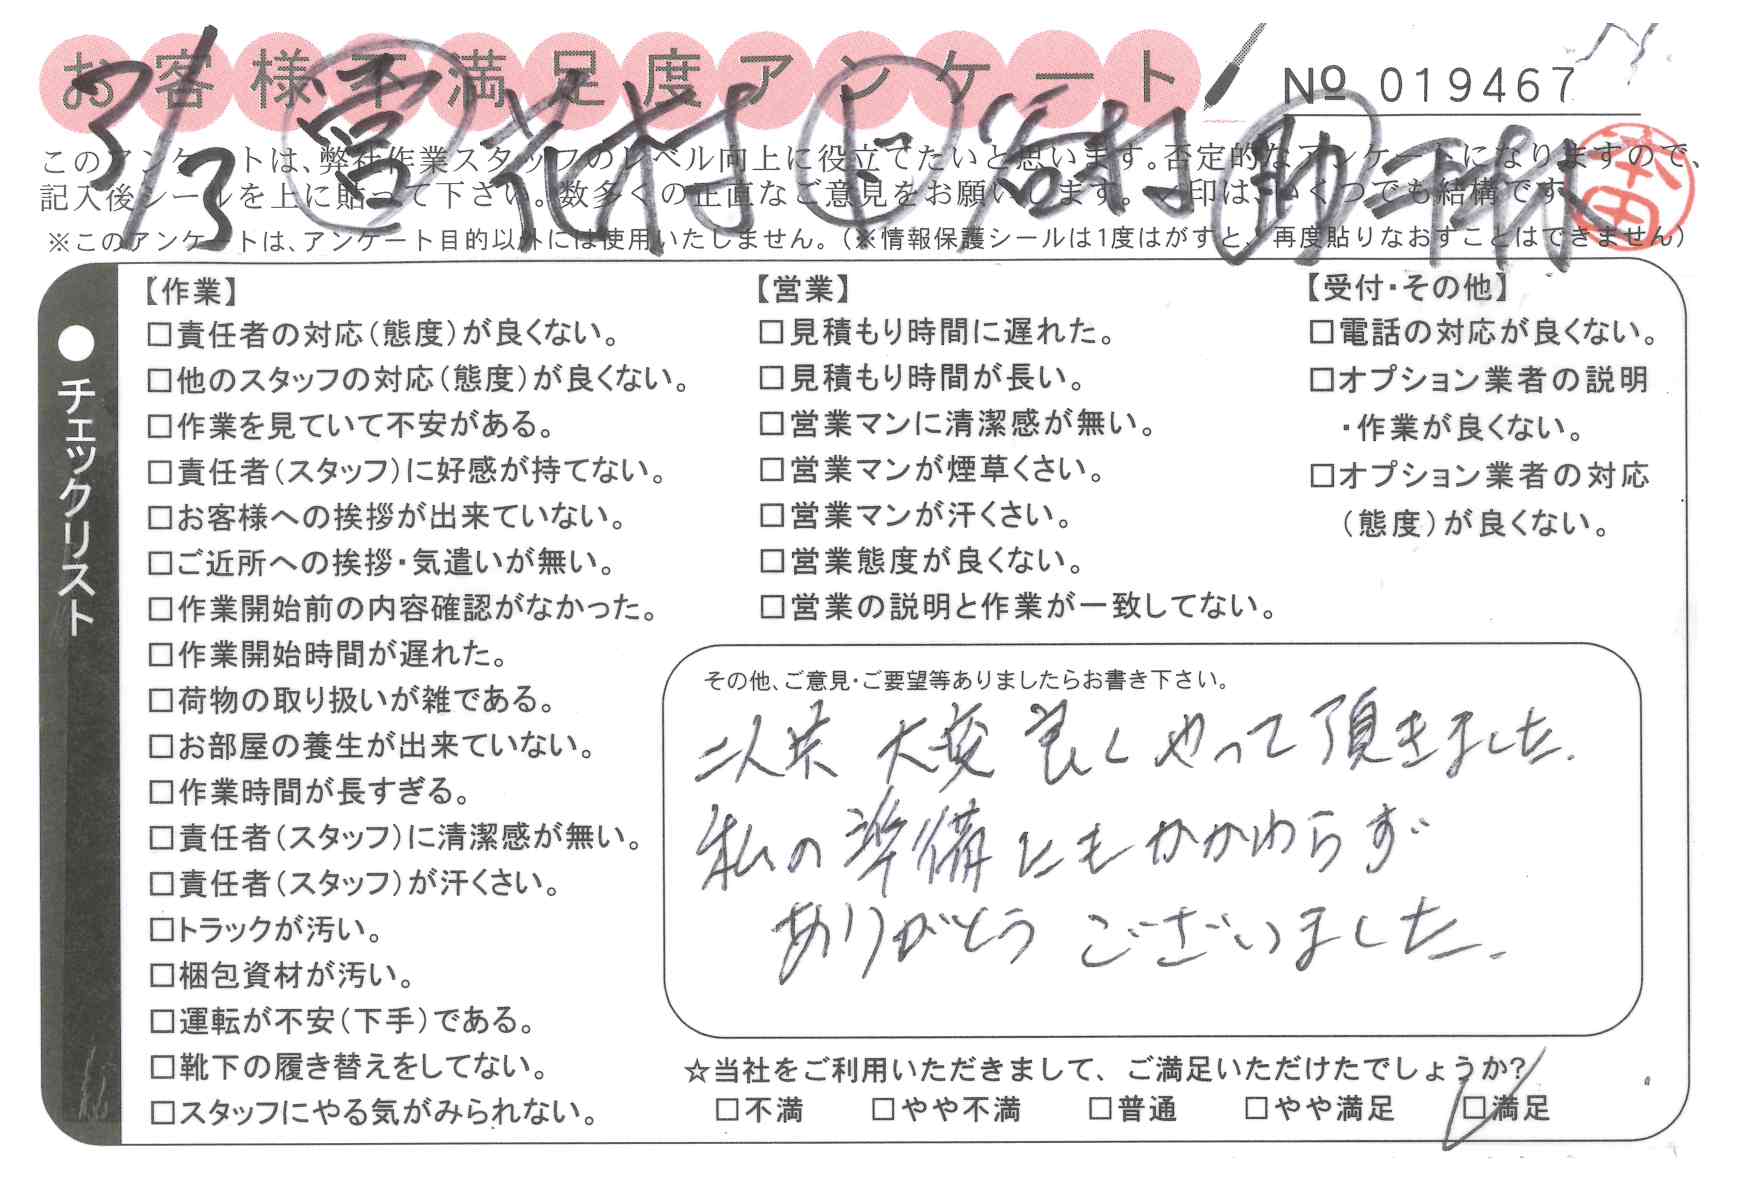 お客様不満足度アンケート
№ 019467
3/3 営 花村 ド 谷村 助 平林
このアンケートは、弊社作業スタッフのレベル向上に役立てたいと思います。否定的なアンケートになりますので、
記入後シールを上に貼って下さい。数多くの正直なご意見をお願いします。✓印は、いくつでも結構です。
※このアンケートは、アンケート目的以外には使用いたしません。(※情報保護シールは1度はがすと、再度貼りなおすことはできません)
●チェックリスト
【作業】
□責任者の対応(態度)が良くない。
□他のスタッフの対応(態度)が良くない。
□作業を見ていて不安がある。
□責任者(スタッフ)に好感が持てない。
□お客様への挨拶が出来ていない。
□ご近所への挨拶・気遣いが無い。
□作業開始前の内容確認がなかった。
□作業開始時間が遅れた。
□荷物の取り扱いが雑である。
□お部屋の養生が出来ていない。
□作業時間が長すぎる。
□責任者(スタッフ)に清潔感が無い。
□責任者(スタッフ)が汗くさい。
□トラックが汚い。
□梱包資材が汚い。
□運転が不安(下手)である。
□靴下の履き替えをしてない。
□スタッフにやる気がみられない。
【営業】
□見積もり時間に遅れた。
□見積もり時間が長い。
□営業マンに清潔感が無い。
□営業マンが煙草くさい。
□営業マンが汗くさい。
□営業態度が良くない。
□営業の説明と作業が一致してない。
【受付・その他】
□電話の対応が良くない。
□オプション業者の説明
・作業が良くない。
□オプション業者の対応
(態度)が良くない。
その他、ご意見・ご要望等ありましたらお書き下さい。
二人共 大変 良く やって 頂きました.
私の 準備にもかかわらず
ありがとう ございました.
☆当社をご利用いただきまして、ご満足いただけたでしょうか?
□不満 □やや不満 □普通 □やや満足 □満足